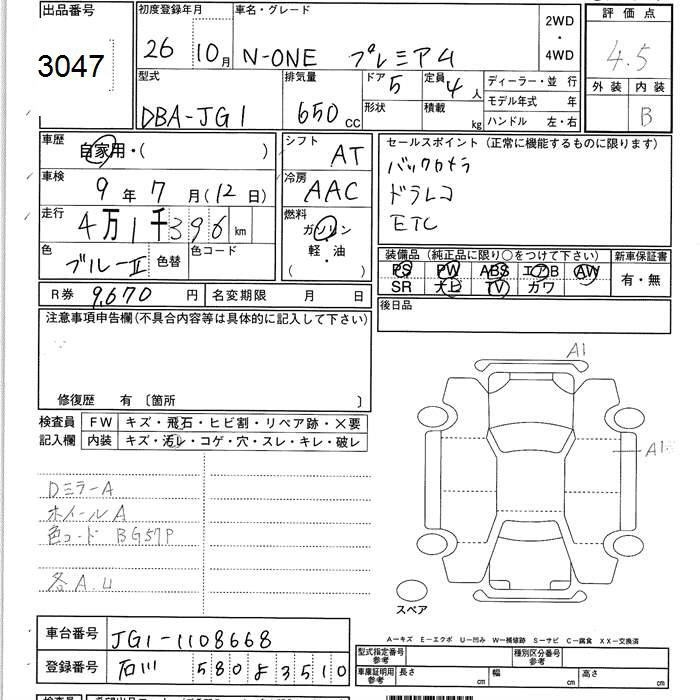 出品番号 3047
初度登録年月 26 10月
車名・グレード N-ONE プレミアム
2WD・4WD
評価点 4.5
外装 内装 B
型式 DBA-JG1
排気量 650cc
ドア 5 定員 4人
形状 積載 kg
ディーラー・並行
モデル年式 年
ハンドル 左・右
車歴 自家用・( )
シフト AT
セールスポイント(正常に機能するものに限ります)
バックカメラ
ドラレコ
ETC
車検 9年7月(12日)
冷房 AAC
走行 4万1千396km
燃料 ガソリン
軽・油
( )
色 ブルーII 色替 色コード
装備品(純正品に限り○をつけて下さい) 新車保証書
PS PW ABS エアB AW 有・無
SR 大ビ TV カワ
R券 9,670円 名変期限 月 日
後日品
注意事項申告欄(不具合内容等は具体的に記入して下さい)
修復歴 有〔箇所 〕
検査員記入欄
FW キズ・飛石・ヒビ割・リペア跡・×要
内装 キズ・汚レ・コゲ・穴・スレ・キレ・破レ
A1
A1
DミラーA
ホイールA
色コード BG57P
各A.U
スペア
車台番号 JG1-1108668
登録番号 石川 580よ3510
A-キズ E-エクボ U-凹み W-補修跡 S-サビ C-腐食 XX-交換済
型式指定番号 参考 種別区分番号 参考
車庫証明用 参考 長さ cm 幅 cm 高さ cm